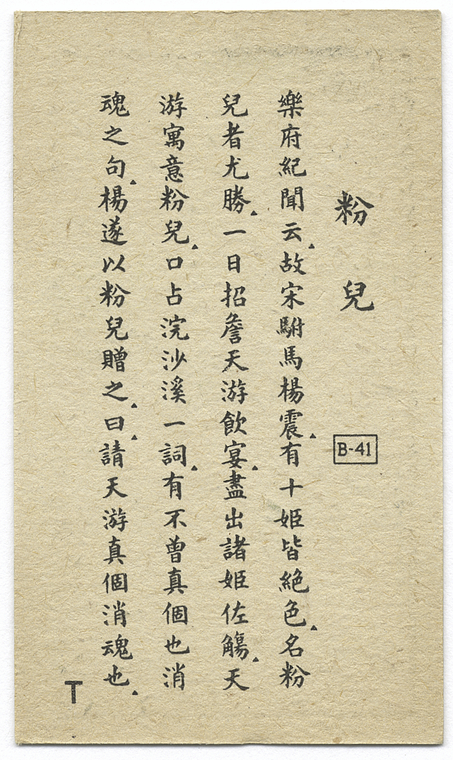 粉兒
B-41
樂府紀聞云▲故宋駙馬楊震▲有十姬皆絕色▲名粉
兒者尤勝▲一日招詹天游飲宴▲盡出諸姬佐觴▲天
游寓意粉兒▲口占浣沙溪一詞▲有不曾真個也消
魂之句▲楊遂以粉兒贈之▲曰▲請天游真個消魂也▲
T